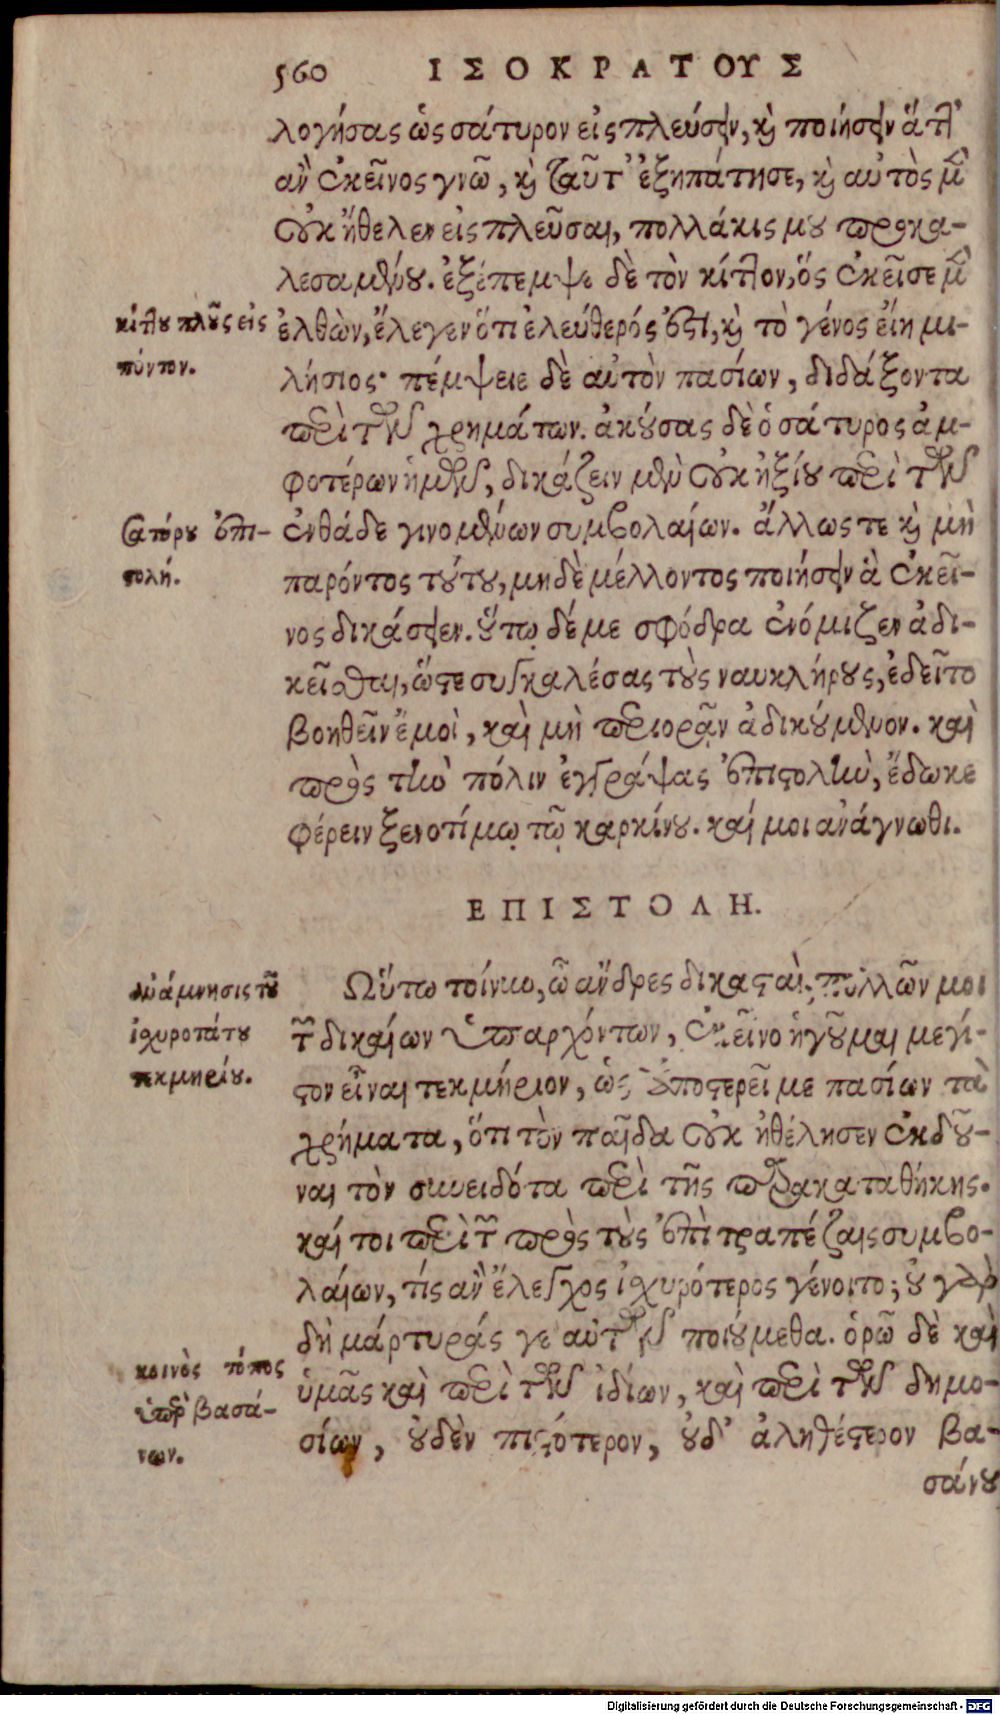 560 ΙΣΟΚΡΑΤΟΥΣ
λογήσας ὡς σάτυρον εἰς πλεύσειν, καὶ ποιήσειν ἅττ'
ἂν ἐκεῖνος γνῷ, καὶ ταῦτ' ἐξηπάτησε, καὶ αὐτὸς μὲν
οὐκ ἤθελεν εἰς πλεῦσαι, πολλάκις μου προκα-
λεσαμένου. ἐξέπεμψε δὲ τὸν κίττον, ὅς ἐκεῖσε μὲν
κίττου πλοῦς εἰς
πόντον.
ἐλθὼν, ἔλεγεν ὅτι ἐλεύθερός ἐστι, καὶ τὸ γένος εἴη μι-
λήσιος· πέμψειε δὲ αὐτὸν πασίων, διδάξοντα
περὶ τῶν χρημάτων. ἀκούσας δὲ ὁ σάτυρος ἀμ-
φοτέρων ἡμῶν, δικάζειν μὲν οὐκ ἠξίου περὶ τῶν
Σατύρου ἐπι-
στολή.
ἐνθάδε γινομένων συμβολαίων. ἄλλως τε καὶ μὴ
παρόντος τούτου, μηδὲ μέλλοντος ποιήσειν ἃ ἐκεῖ-
νος δικάσειεν. οὕτω δέ με σφόδρα ἐνόμιζεν ἀδι-
κεῖσθαι, ὥστε συγκαλέσας τοὺς ναυκλήρους, ἐδεῖτο
βοηθεῖν ἐμοὶ, καὶ μὴ περιορᾷν ἀδικούμενον. καὶ
πρὸς τὴν πόλιν ἐγγράψας ἐπιστολὴν, ἔδωκε
φέρειν ξενοτίμῳ τῷ καρκίνου. καί μοι ἀνάγνωθι.
ΕΠΙΣΤΟΛΗ.
ἀνάμνησις τοῦ
ἰσχυροτάτου
τεκμηρίου.
Οὕτω τοίνυν, ὦ ἄνδρες δικασταὶ, πολλῶν μοι
τῶν δικαίων ὑπαρχόντων, ἐκεῖνο ἡγοῦμαι μέγι-
στον εἶναι τεκμήριον, ὡς ἀποστερεῖ με πασίων τὰ
χρήματα, ὅτι τὸν παῖδα οὐκ ἠθέλησεν ἐκδοῦ-
ναι τὸν συνειδότα περὶ τῆς παρακαταθήκης.
καί τοι περὶ τῶν πρὸς τοὺς ἐπὶ τραπέζαις συμβο-
λαίων, τίς ἂν ἔλεγχος ἰσχυρότερος γένοιτο; οὐ γὰρ
δὴ μάρτυράς γε αὐτῶν ποιούμεθα. ὁρῶ δὲ καὶ
κοινὸς τόπος
ὑπὲρ βασά-
νων.
ὑμᾶς καὶ περὶ τῶν ἰδίων, καὶ περὶ τῶν δημο-
σίων, οὐδὲν πιστότερον, οὐδ' ἀληθέστερον βα-
σάνου
Digitalisierung gefördert durch die Deutsche Forschungsgemeinschaft - DFG